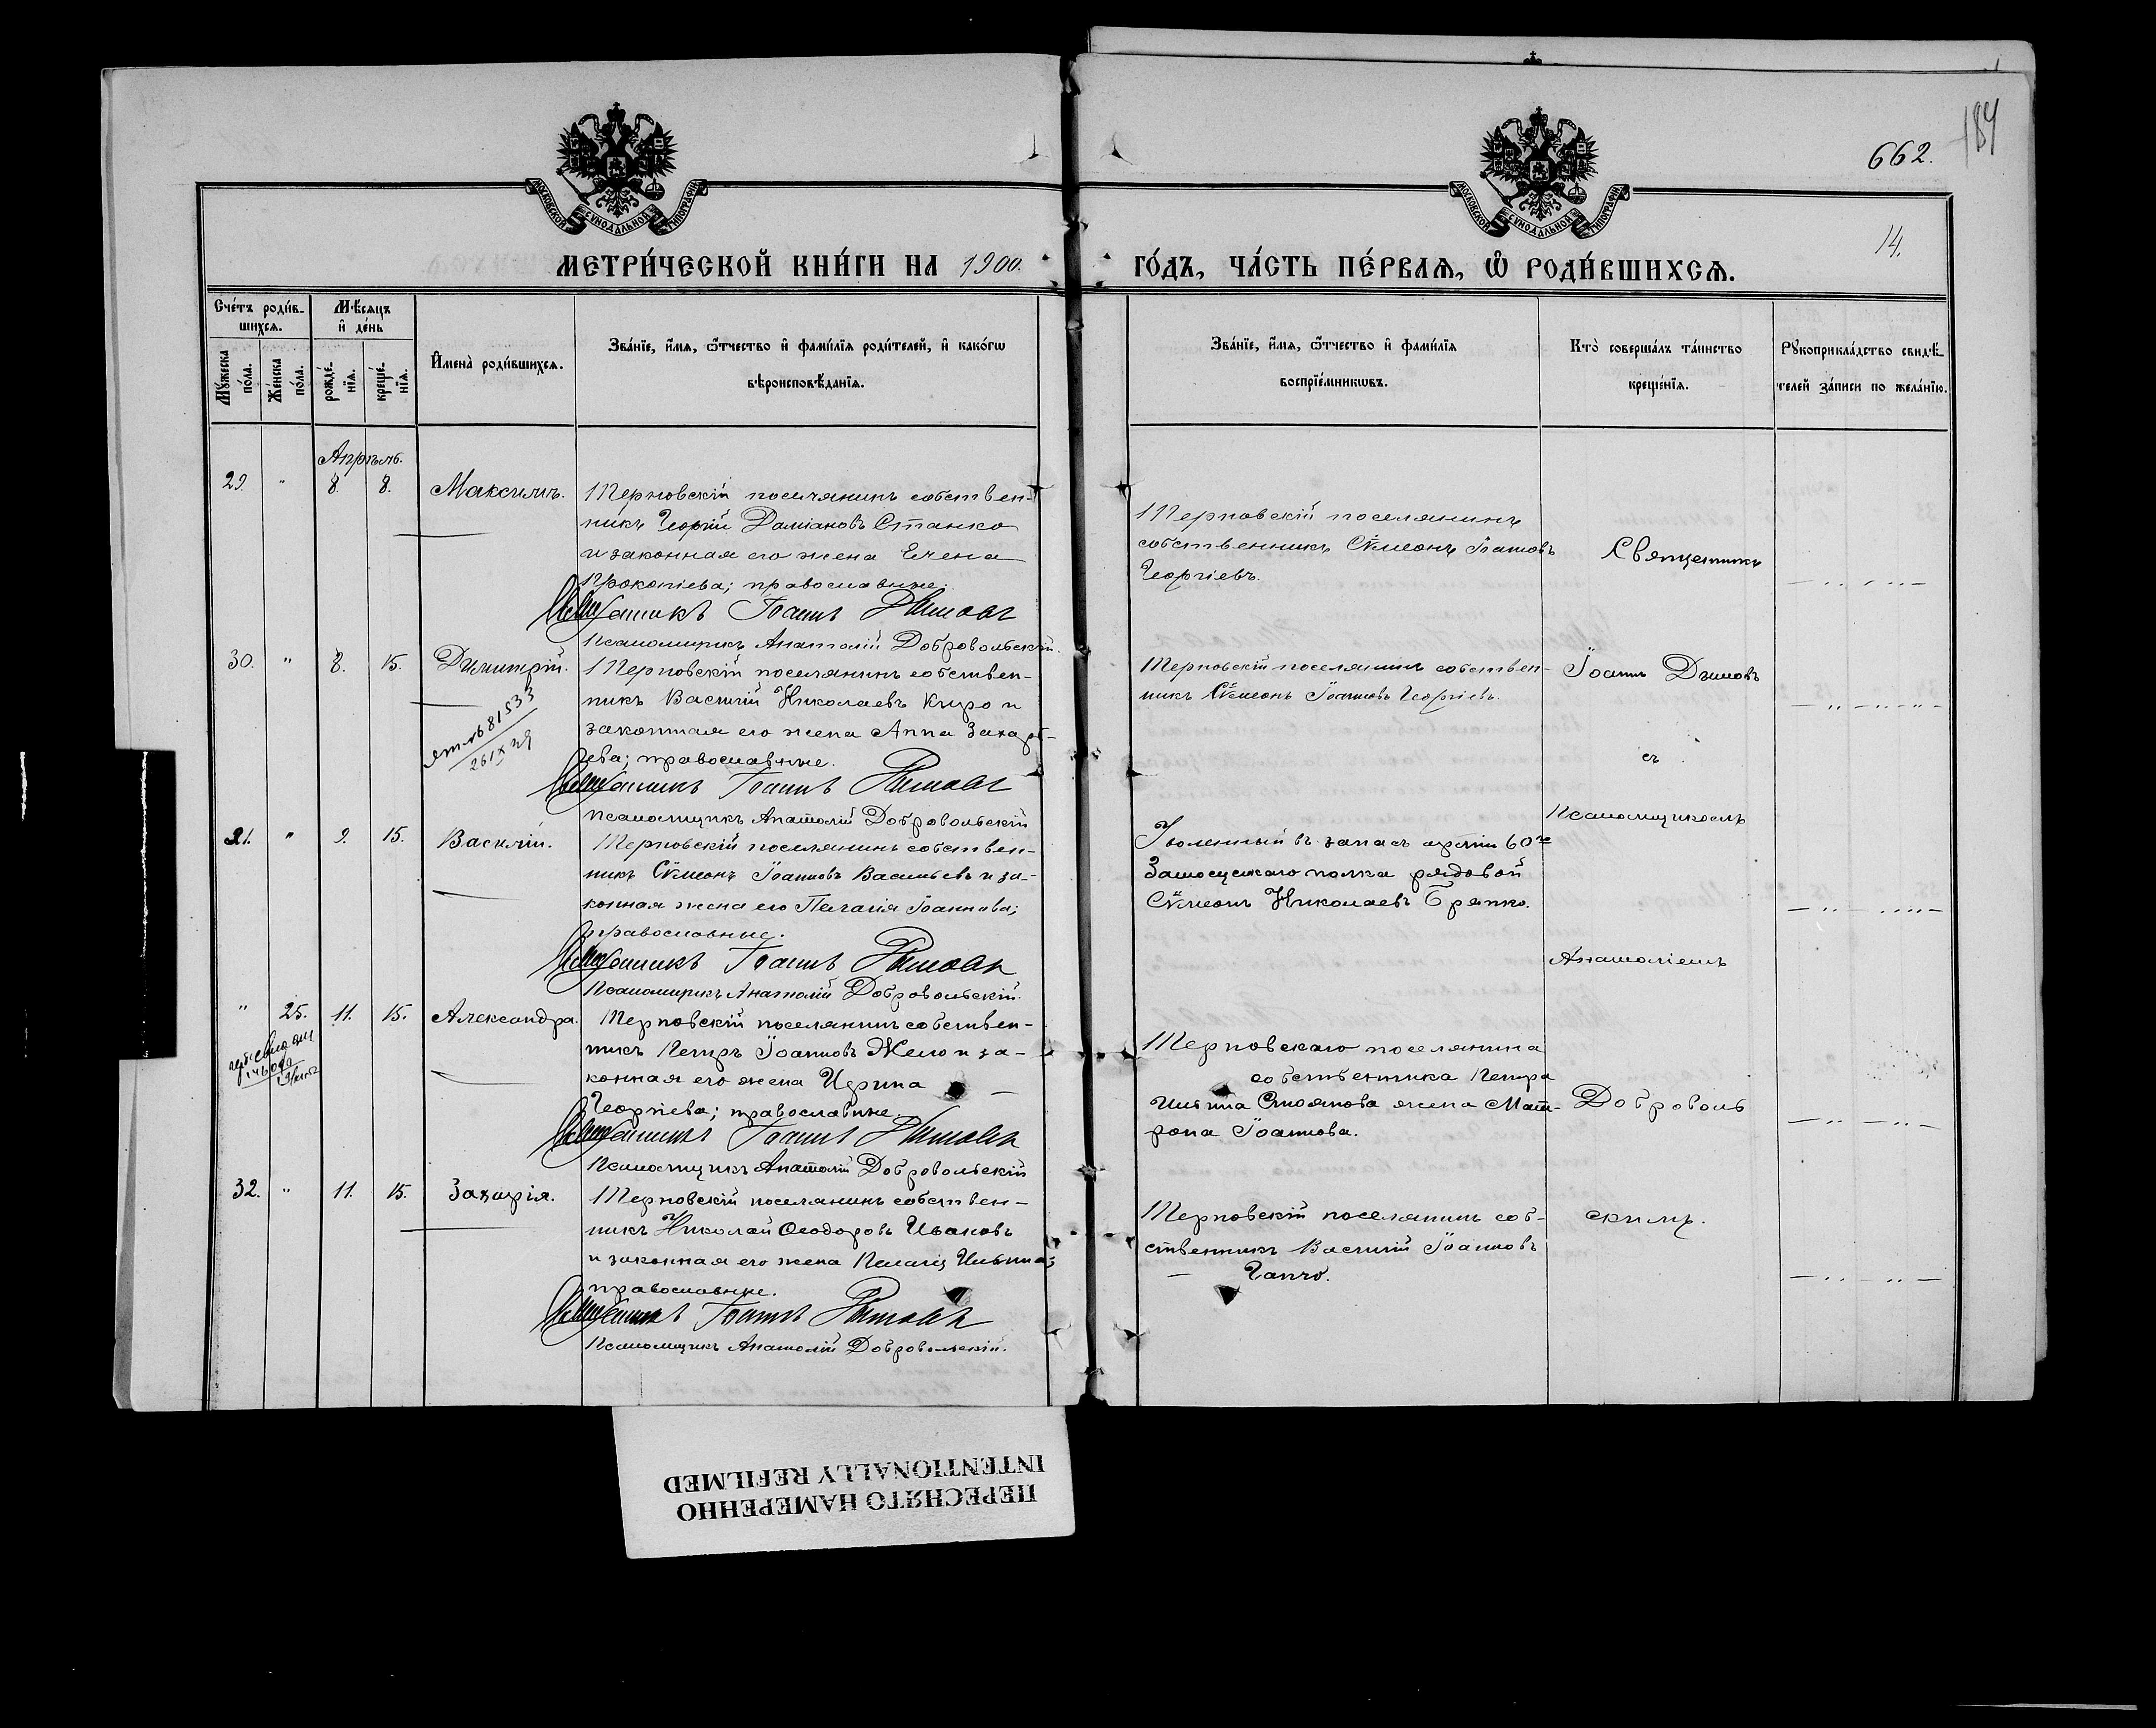 184
662.
14.
МОСКОВСКОЙ СѴНОДАЛЬНОЙ ТИПОГРАФІИ
МОСКОВСКОЙ СѴНОДАЛЬНОЙ ТИПОГРАФІИ
МЕТРИ́ЧЕСКОЙ КНИ́ГИ НА 1900.
ГО́ДЪ, ЧА́СТЬ ПЕ́РВАѦ, Ѽ РОДИ́ВШИХСѦ.
Сче́тъ роди́в-
шихсѧ.
Мѣ́сѧцъ
и҆ де́нь
Мꙋ́жеска
по́ла.
Же́нска
по́ла.
рожде́-
нїѧ.
креще́-
нїѧ.
И҆мена̀ роди́вшихсѧ.
Зва́нїе, и҆́мѧ, ѻ҆́тчество и҆ фами́лїѧ роди́телей, и҆ како́гѡ
вѣроисповѣ́данїѧ.
Зва́нїе, и҆́мѧ, ѻ҆́тчество и҆ фами́лїѧ
воспрїе́мникѡвъ.
Кто̀ соверша́лъ та́инство
креще́нїѧ.
Рꙋкоприкла́дство свидѣ́-
телей за́писи по жела́нїю.
Апрѣль.
29. " 8. 8. Максимъ.
Терновскій поселянинъ собствен-
никъ Георгій Даміановъ Станко
и законная его жена Елена
Прокопіева; православные.
Священникъ Іоаннъ Дымовъ
Псаломщикъ Анатолій Добровольскій.
Терновскій поселянинъ
собственникъ Сѷмеонъ Іоанновъ
Георгіевъ.
Священникъ
30. " 8. 15. Димитрій.
81533
Терновскій поселянинъ собствен-
никъ Василій Николаевъ Киро и
законная его жена Анна Захарь-
ева; православные.
Священникъ Іоаннъ Дымовъ
Псаломщикъ Анатолій Добровольскій
Терновскій поселянинъ собствен-
никъ Сѷмеонъ Іоанновъ Георгіевъ.
Іоаннъ Дымовъ
съ
Псаломщикомъ
31. " 9. 15. Василій.
Терновскій поселянинъ собствен-
никъ Сѷмеонъ Іоанновъ Васильевъ и за-
конная жена его Пелагія Іоаннова;
православные.
Священникъ Іоаннъ Дымовъ
Псаломщикъ Анатолій Добровольскій.
Уволенный въ запасъ арміи 60го
Замосцскаго полка рядовой
Сѷмеонъ Николаевъ Брянко.
Анатоліемъ
" 25. 11. 15. Александра.
Терновскій поселянинъ собствен-
никъ Петръ Іоанновъ Жело и за-
конная его жена Ирина
Георгіева; православные.
Священникъ Іоаннъ Дымовъ
Псаломщикъ Анатолій Добровольскій
Терновскаго поселянина
собственника Петра
Ильина Стоянова жена Мат-
рона Іоаннова.
Доброволь
32. " 11. 15. Захарія.
Терновскій поселянинъ собствен-
никъ Николай Ѳеодоровъ Ивановъ
и законная его жена Пелагія Ильина;
православные.
Священникъ Іоаннъ Дымовъ
Псаломщикъ Анатолій Добровольскій.
Терновскій поселянинъ соб-
ственникъ Василій Іоанновъ
Ганчо.
скимъ.
ПЕРЕСНЯТО НАМЕРЕННО
INTENTIONALLY REFILMED